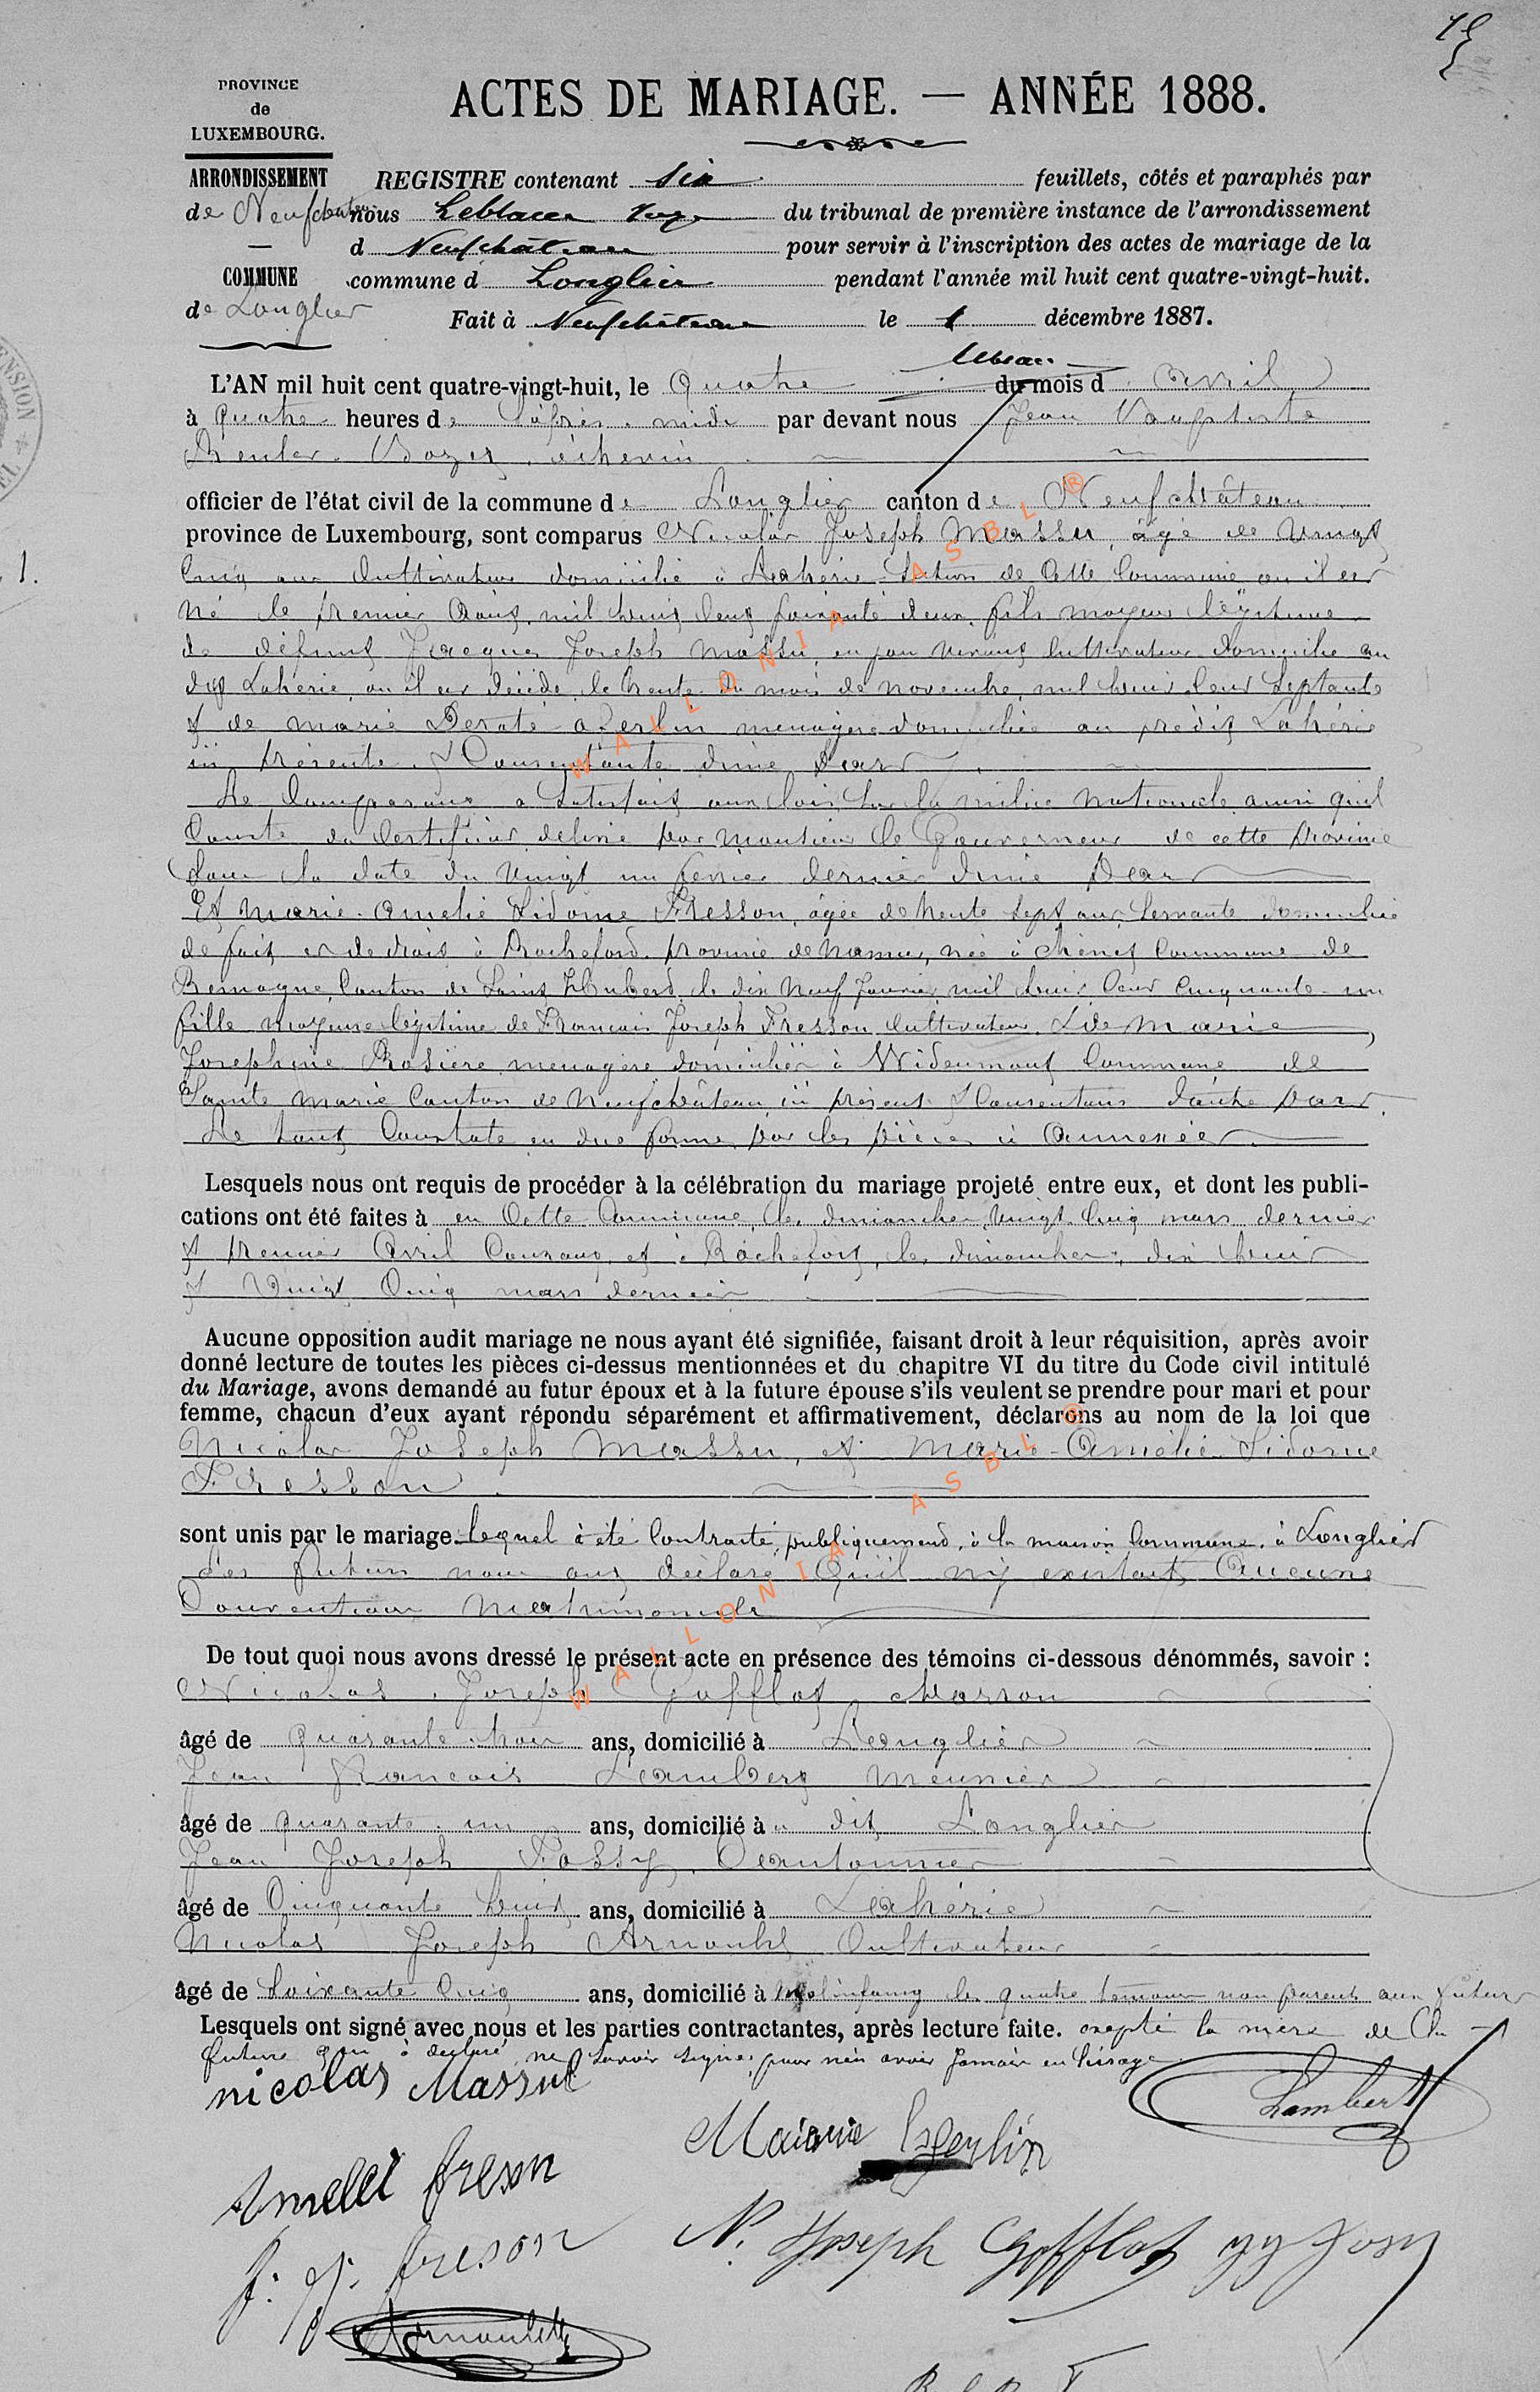 PROVINCE
de
LUXEMBOURG.
ACTES DE MARIAGE. — ANNÉE 1888.
ARRONDISSEMENT
de Neufchateau
COMMUNE
de Longlier
REGISTRE contenant six feuillets, côtés et paraphés par
nous juge du tribunal de première instance de l'arrondissement
d Neufchâteau pour servir à l'inscription des actes de mariage de la
commune d Longlier pendant l'année mil huit cent quatre-vingt-huit.
Fait à Neufchâteau le 1 décembre 1887.
1.
L'AN mil huit cent quatre-vingt-huit, le Quatre du mois d avril
à quatre heures de l'après-midi par devant nous Jean Baptiste
échevin
officier de l'état civil de la commune de Longlier canton de Neufchâteau
province de Luxembourg, sont comparus Nicolas Joseph Massu, âgé de vingt
cinq ans cultivateur domicilié à Lahérie Section de cette Commune où il est
né le premier Août mil huit cent soixante deux, fils majeur légitime
de défunt Jacques Joseph Massu, en son vivant cultivateur domicilié au
dit Lahérie, où il est décédé le trente du mois de novembre mil huit cent septante
et de Marie ménagère domiciliée au prédit Lahérie
ici présente et Consentante d'une part
Le Comparant a satisfait aux lois sur la milice nationale ainsi qu'il
Conste du Certificat délivré par Monsieur le Gouverneur de cette Province
sous la date du vingt un février dernier d'une Part
Et Marie-Amelie Sidonie Fresson, âgée de trente sept ans Servante domiciliée
de fait et de droit à Rochefort province de Namur, née à Chenet Commune de
Remagne Canton de Saint Hubert, le dix neuf Janvier mil huit cent cinquante-un
fille majeure légitime de François Joseph Fresson cultivateur & de Marie
Josephine Rosière ménagère domiciliés à Wideumont Commune de
Sainte Marie Canton de Neufchâteau ici présent & Consentans d'autre part.
Le tout Constaté en due forme par les pièces ci Annexées
Lesquels nous ont requis de procéder à la célébration du mariage projeté entre eux, et dont les publi-
cations ont été faites à en Cette Commune, les dimanches vingt cinq mars dernier
et premier Avril Courant et à Rochefort, les dimanches dix huit
et Vingt Cinq mars dernier
Aucune opposition audit mariage ne nous ayant été signifiée, faisant droit à leur réquisition, après avoir
donné lecture de toutes les pièces ci-dessus mentionnées et du chapitre VI du titre du Code civil intitulé
du Mariage, avons demandé au futur époux et à la future épouse s'ils veulent se prendre pour mari et pour
femme, chacun d'eux ayant répondu séparément et affirmativement, déclarons au nom de la loi que
Nicolas Joseph Massu, et Marie-Amélie Sidonie
Fresson
sont unis par le mariage. lequel à été Contracté, publiquement, à la maison Commune, à Longlier
Les futurs nous ont déclaré Qu'il n'y existait Aucune
Convention Matrimoniale
De tout quoi nous avons dressé le présent acte en présence des témoins ci-dessous dénommés, savoir :
Nicolas Joseph Gofflot
âgé de quarante-trois ans, domicilié à Longlier
Jean François Lambert Meunier
âgé de quarante-un ans, domicilié à u dit Longlier
Jean Joseph Fossy, Cantonnier
âgé de Cinquante huit ans, domicilié à Lahérie
Nicolas Joseph Arnould Cultivateur
âgé de Soixante Cinq ans, domicilié à Molinfaing les quatre temoins non parents aux futurs
Lesquels ont signé avec nous et les parties contractantes, après lecture faite. excepté la mère de la
future qui a déclaré ne savoir signer pour n'en avoir Jamais eu l'usage
nicolas Massul
Lambert
Amelie freson
f. j. freson
N. Joseph Gofflot
WALLONIA ASBL ®
WALLONIA ASBL ®